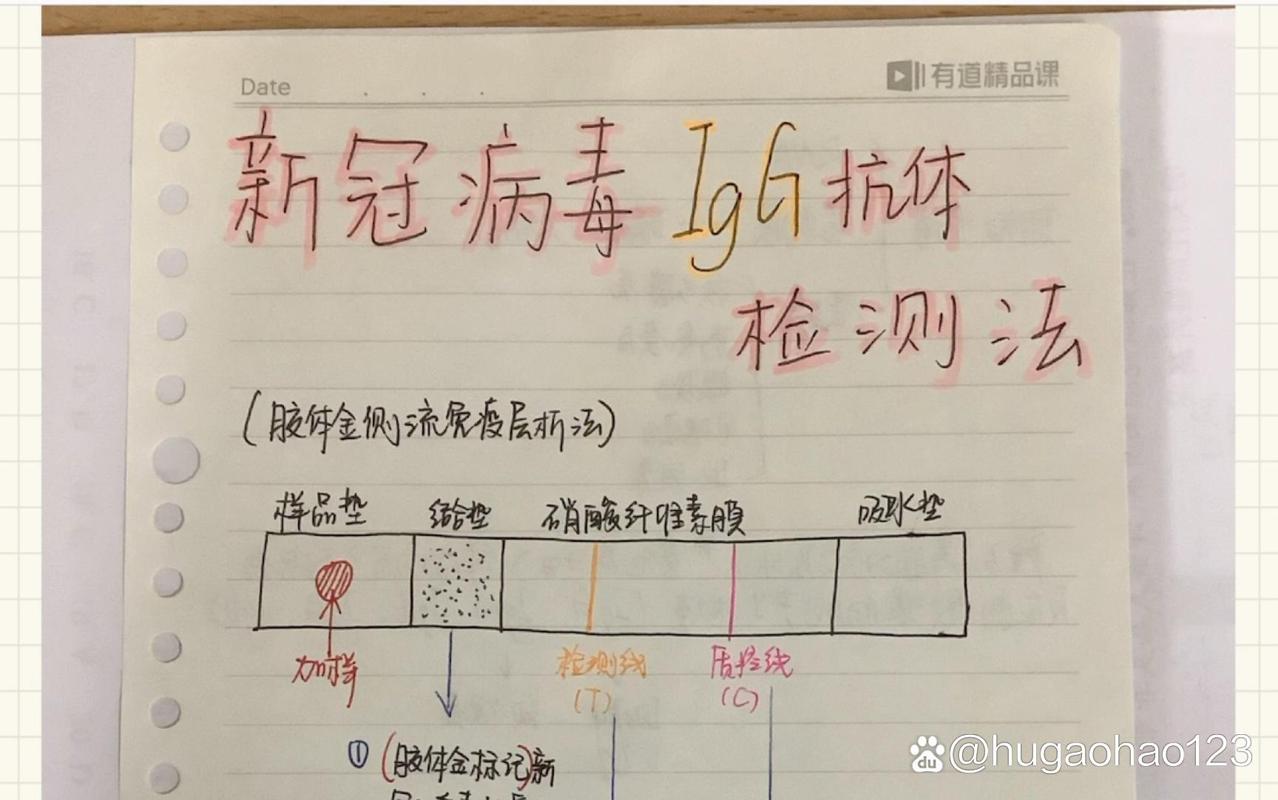 Date
有道精品课
新冠病毒 IgG 抗体
检测法
(胶体金侧流免疫层析法)
样品垫 结合垫 硝酸纤维素膜 吸水垫
加样 检测线 质控线
(T) (C)
① (胶体金标记)新
du @hugaohao123